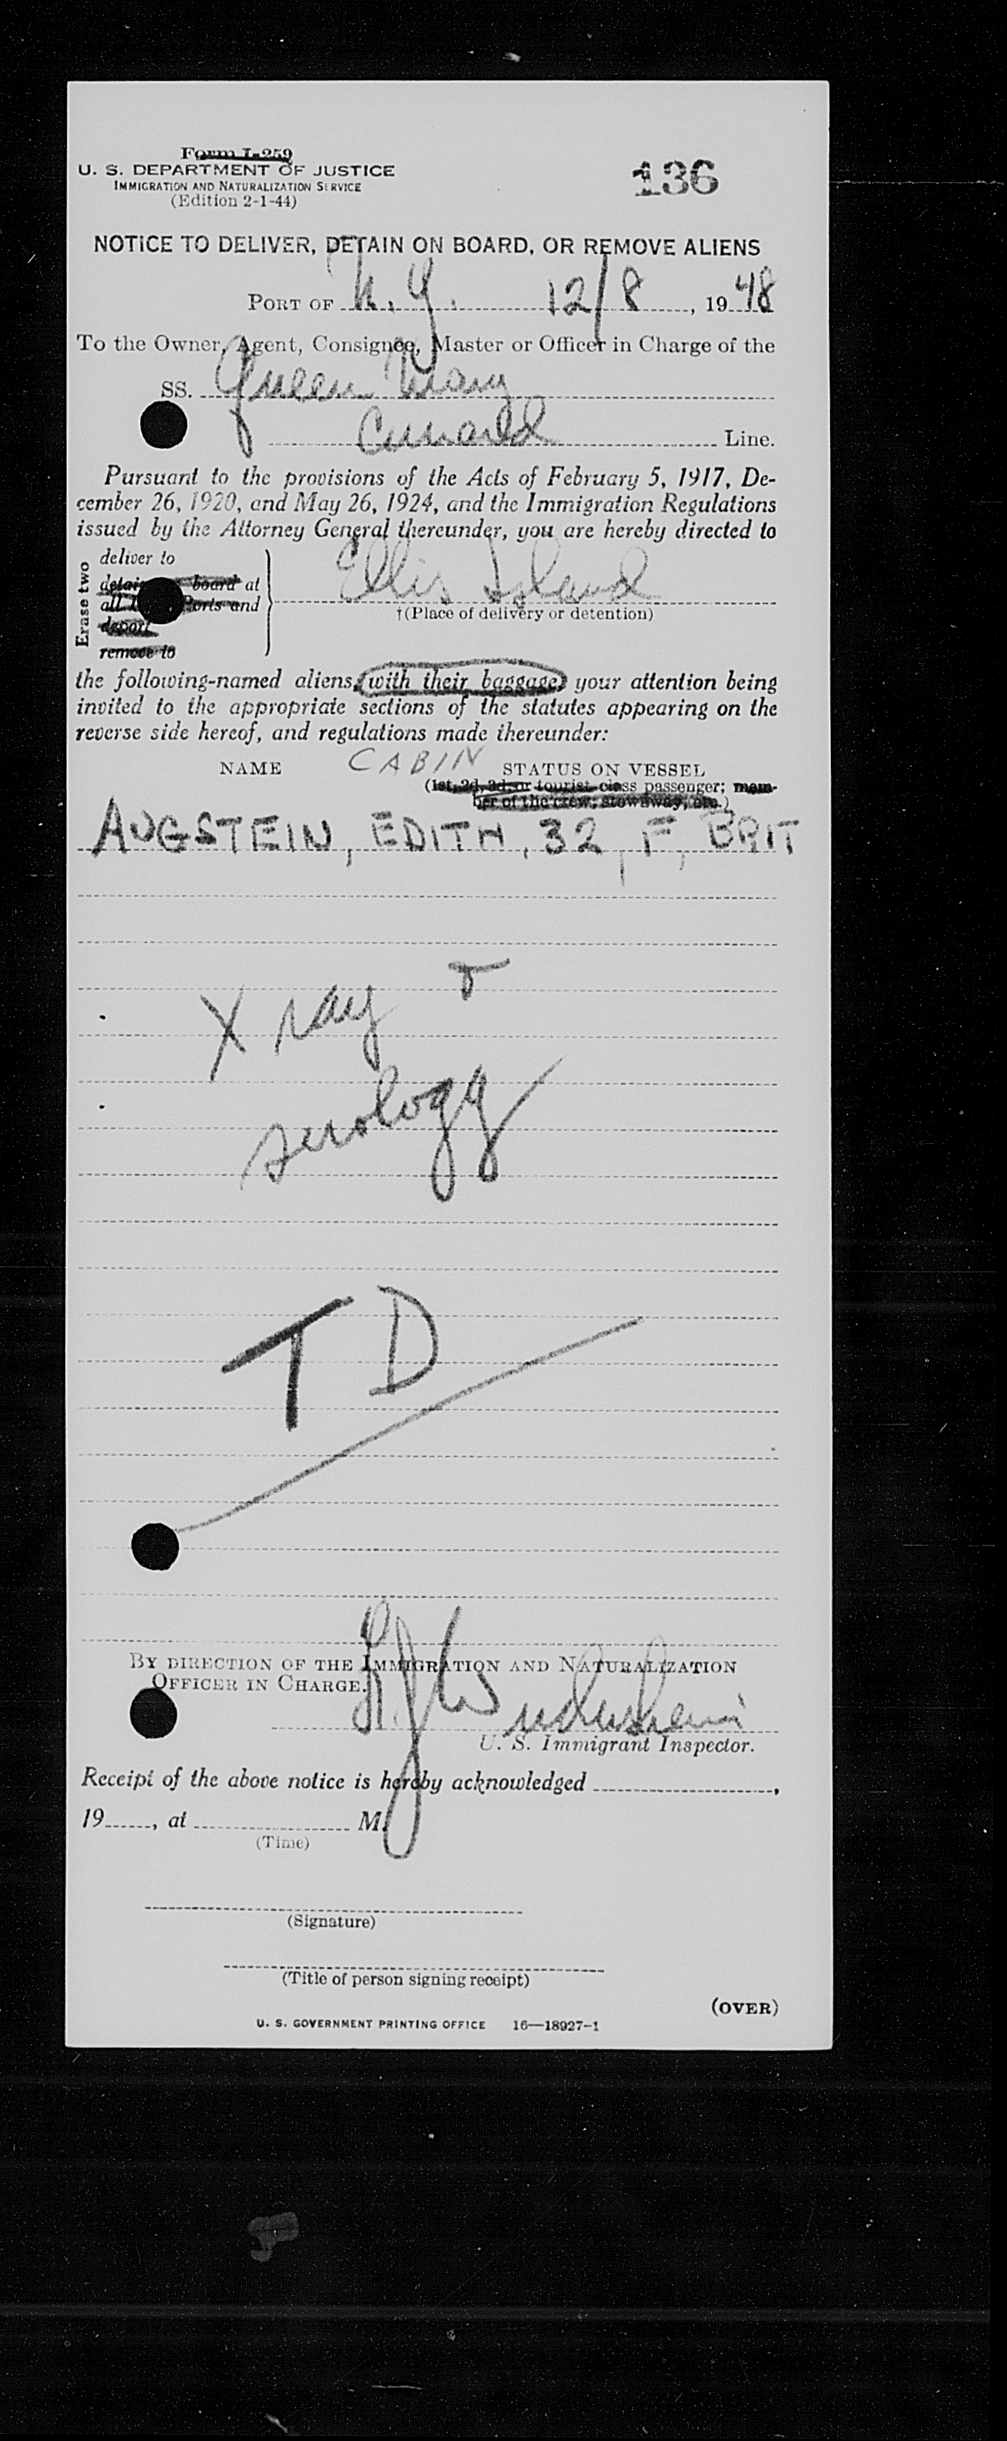 Form I-259
U. S. DEPARTMENT OF JUSTICE
IMMIGRATION AND NATURALIZATION SERVICE
(Edition 2-1-44)
136
NOTICE TO DELIVER, DETAIN ON BOARD, OR REMOVE ALIENS
PORT OF N. Y. 12/8, 1948
To the Owner, Agent, Consignee, Master or Officer in Charge of the
SS. Queen Mary
Cunard Line.
Pursuant to the provisions of the Acts of February 5, 1917, De-
cember 26, 1920, and May 26, 1924, and the Immigration Regulations
issued by the Attorney General thereunder, you are hereby directed to
Erase two
deliver to
board at
all Ports and
deport
remove to
Ellis Island
†(Place of delivery or detention)
the following-named aliens, with their baggage, your attention being
invited to the appropriate sections of the statutes appearing on the
reverse side hereof, and regulations made thereunder:
NAME CABIN STATUS ON VESSEL
(1st, 2d, 3d, or tourist class passenger; mem-
ber of the crew; stowaway, etc.)
AUGSTEIN, EDITH, 32, F, BRIT
X ray
serology
T D
BY DIRECTION OF THE IMMIGRATION AND NATURALIZATION
OFFICER IN CHARGE.
U. S. Immigrant Inspector.
Receipt of the above notice is hereby acknowledged ,
19 , at M.
(Time)
(Signature)
(Title of person signing receipt)
(OVER)
U. S. GOVERNMENT PRINTING OFFICE 16—18927-1